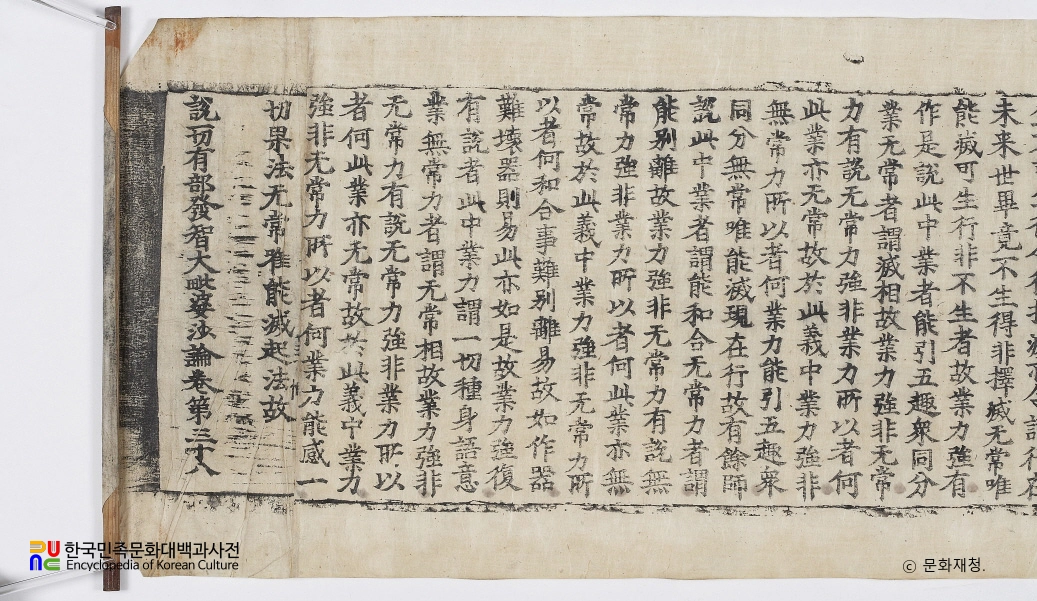 未来世畢竟不生得非擇滅无常唯
能滅可生行非不生者故業力強有
作是說此中業者能引五趣衆同分
業无常者謂滅相故業力強非无常
力有說无常力強非業力所以者何
此業亦无常故於此義中業力強非
無常力所以者何業力能引五趣衆
同分無常唯能滅現在行故有餘師
說此中業者謂能和合无常力者謂
能別離故業力強非无常力有說無
常力強非業力所以者何此業亦無
常故於此義中業力強非无常力所
以者何和合事難別離易故如作器
難壞器則易此亦如是故業力強復
有說者此中業力謂一切種身語意
業無常力者謂无常相故業力強非
无常力有說无常力強非業力所以
者何此業亦无常故於此義中業力
強非无常力所以者何業力能感一
切果法无常唯能滅起法故
說一切有部發智大毗婆沙論卷第三十八
한국민족문화대백과사전
Encyclopedia of Korean Culture
ⓒ 문화재청.